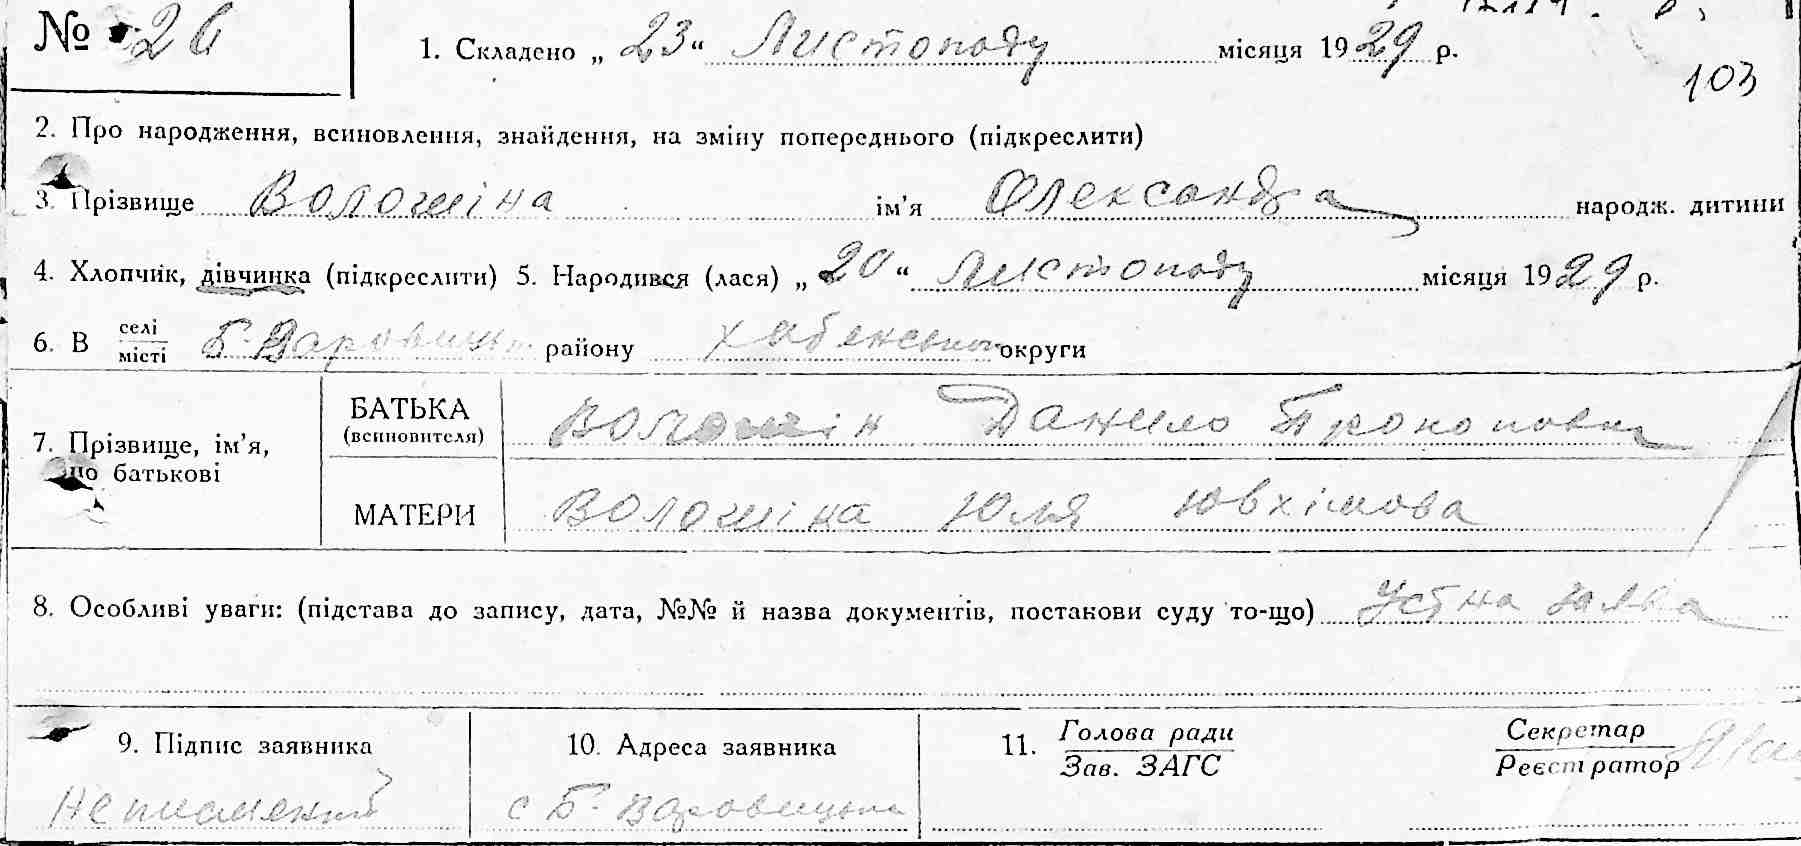 № 26
1. Складено „ 23 “ Листопаду місяця 1929 р.
103
2. Про народження, всиновлення, знайдення, на зміну попереднього (підкреслити)
3. Прізвище Волошіна ім’я Олександра народж. дитини
4. Хлопчик, дівчинка (підкреслити) 5. Народився (лася) „ 20 “ Листопаду місяця 1929 р.
6. В селі місті Б. району округи
7. Прізвище, ім’я, по батькові
БАТЬКА (всиновителя) Волошін Данило Прокопович
МАТЕРИ Волошіна Юля Ювхімова
8. Особливі уваги: (підстава до запису, дата, №№ й назва документів, постанови суду то-що) Устна заява
9. Підпис заявника
10. Адреса заявника
11. Голова ради Зав. ЗАГС
Секретар Реєстратор
Неписьмений
с Б.